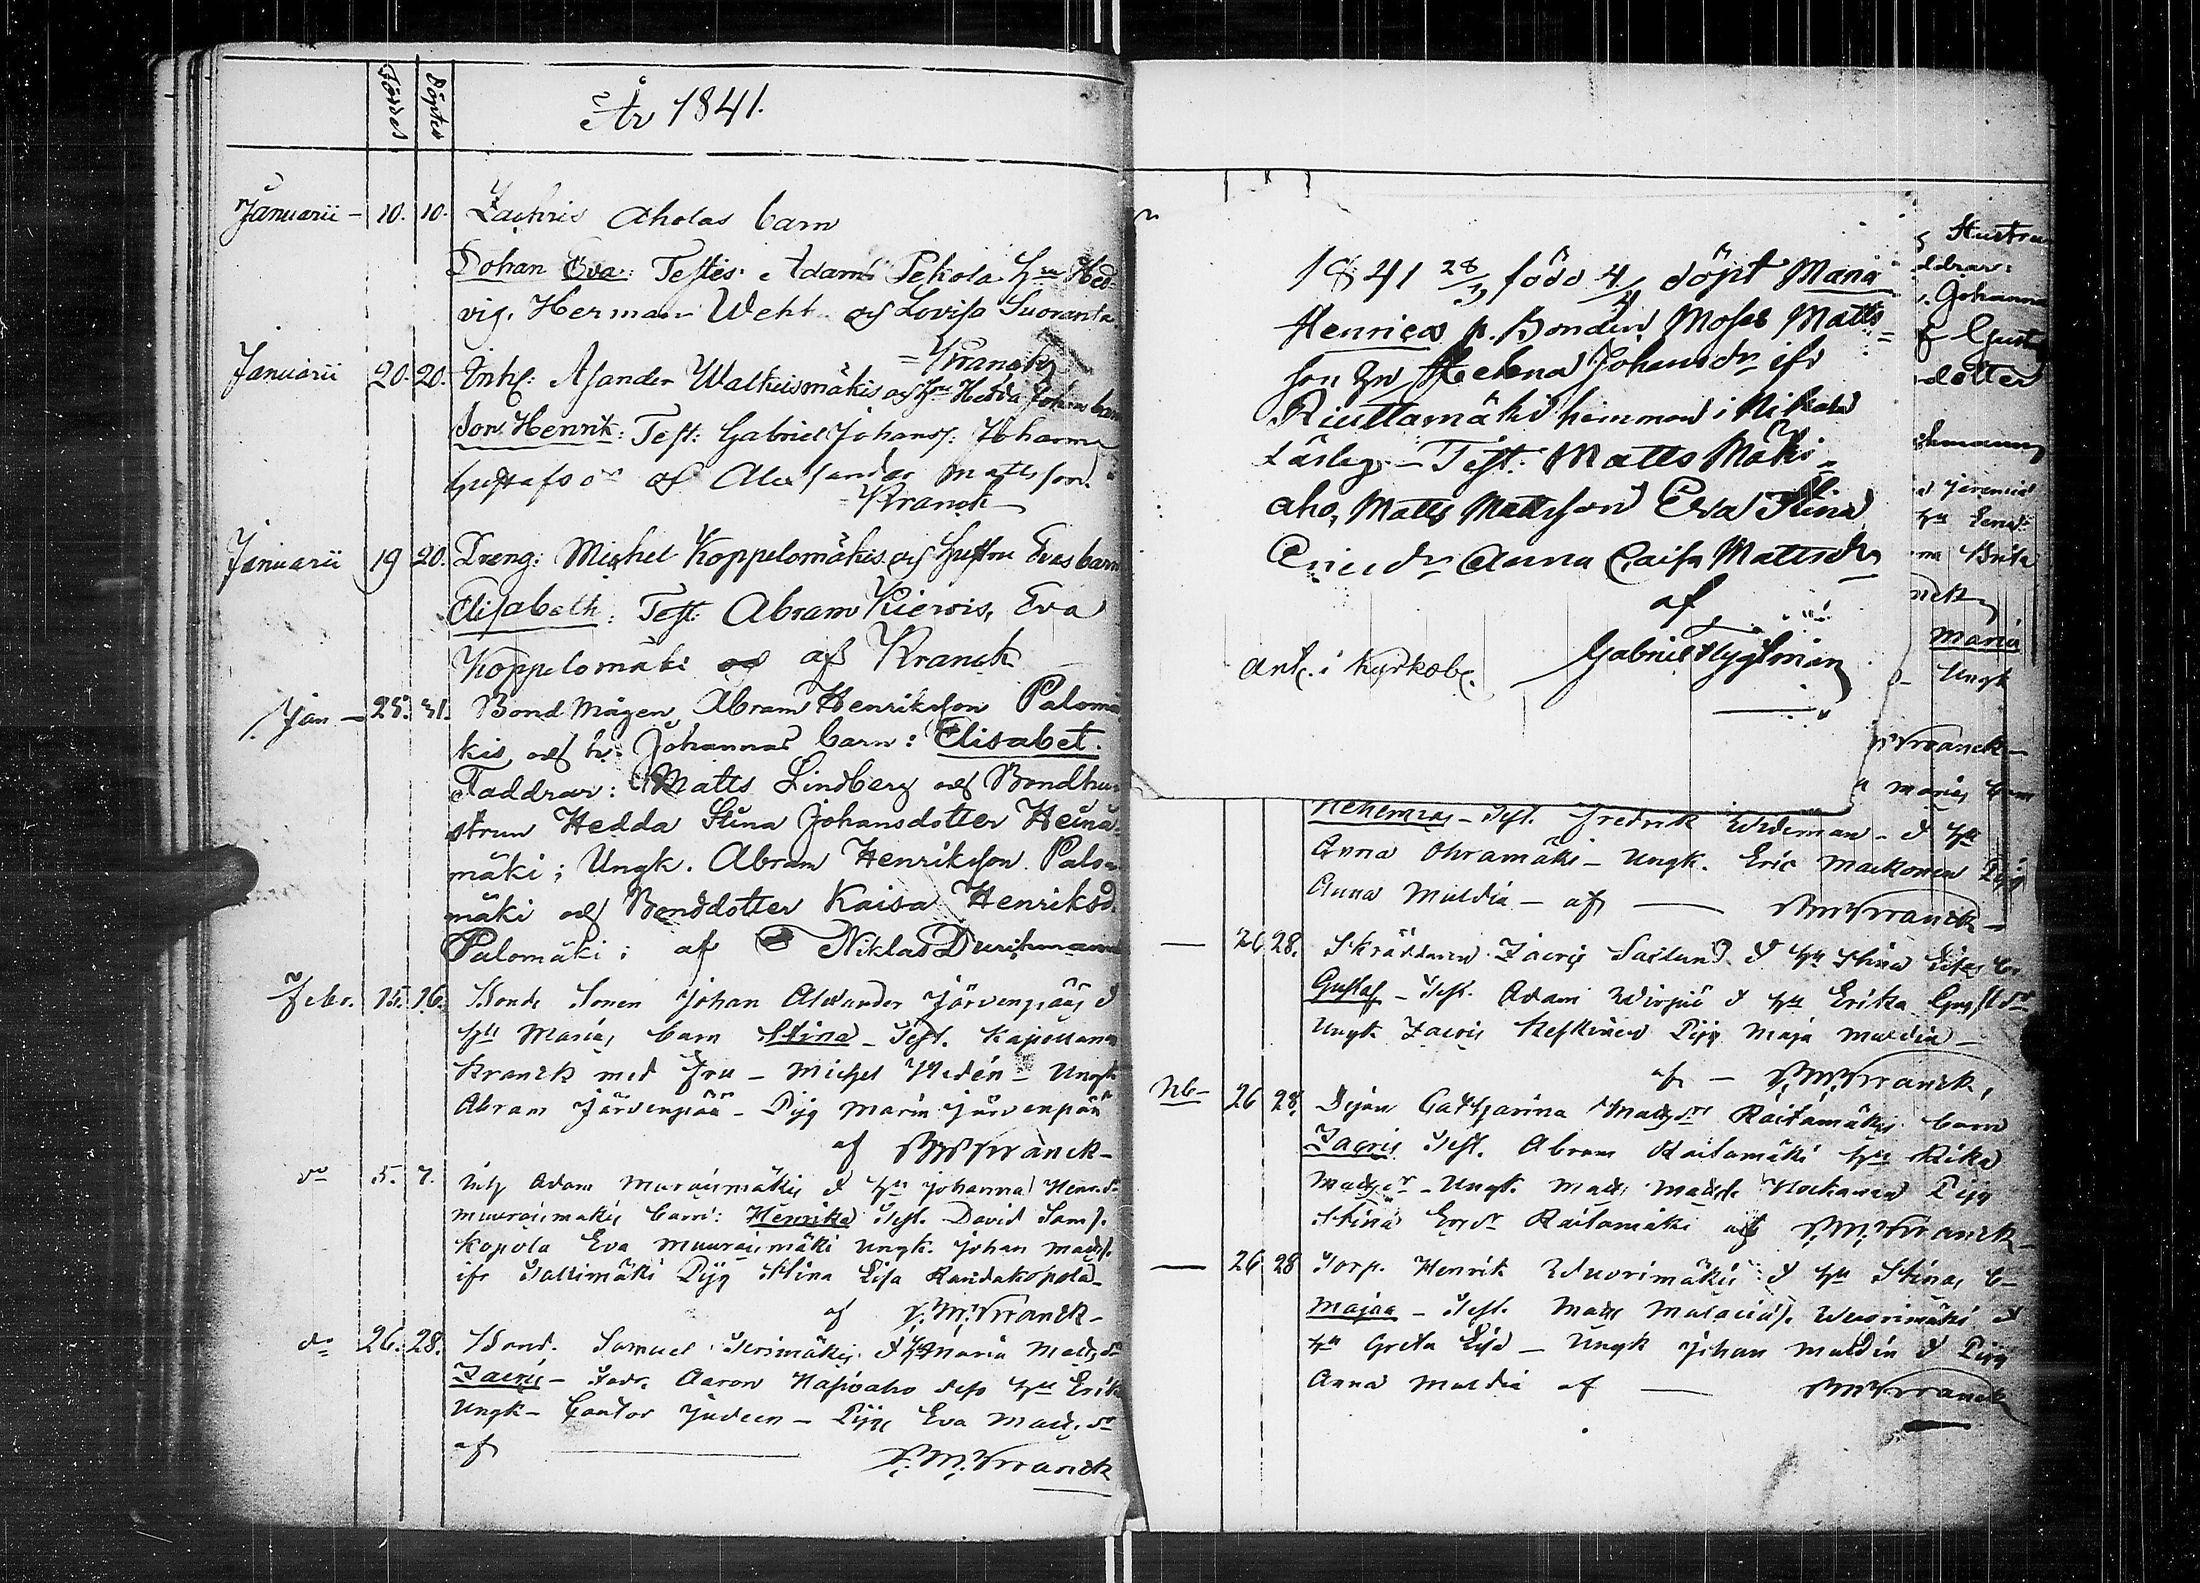 Födde Döpte År 1841.
Januarii - 10. 10. Zachris Aholas barn
Johan Eva: Testes: Adam Pekola hu Hed-
vig, Herman Weht och Lovisa Suoranta
=Kranck
Januarii 20. 20. Inhs: Asander Walkeismäkis och hu Hedda Johans barn
Son Henrik: Test: Gabriel Johans: Johanna
Gustafsdr af Alexander Mattsson.
=Kranck
Januarii 19 20. Dreng: Michel Koppelomäkis och Hustru Evas barn
Elisabeth: Test: Abram Kierois, Eva
Koppelomäki af Kranck
Jan - 25. 31. Bond Mågen Abram Henriksson Palomä-
kis och h. Johannas barn: Elisabet.
Faddrar: Matts Lindberg och Bondhu-
strun Hedda Stina Johansdotter Heinä-
mäki; Ungk. Abram Henriksson Palo-
mäki och Bonddotter Kaisa Henriksd.
Palomäki; af Niklas Durchman
Febr. 15. 16. Bonde Sonen Johan Alexander Järvenpääs &
hu Marias barn Stina - Test. Kapellanen
Kranck med Fru - Michel Widén - Ungk
Abram Järvenpää - Pig Maria Järvenpää
af Kranck -
do 5. 7. Inhs Adam Muuraismäkis & hu Johanna Henrsdr
Muuraismäkis barn: Henrika Test. David Sams.
Kopola Eva Muuraismäki Ungk. Johan Matts.
ifr Sallimäki Pig Stina Lisa Randakopola -
af Kranck -
do 26. 28. Bond. Samuel & hu Maria Mattsdr
Zacris - Fadr. Aaron dess hu Erika
Ungk - Cantor Judeen - Pig Eva Mattsdr
af Kranck
1841 28/3 född 4/4 döpt Maria
Henrica f. Bonden Moses Matts-
son hu Helena Johansdr ifr
Riuttamäki hemman i Nikala
- Test: Matts Mäki-
aho, Matts Mattsson Eva Stina
Ericsdr Anna Caisa Mattsdr
af
Gabriel Flygtman
Ant. i Kyrkob.
Hustru
ddrar:
Johanna
& Gusta
dotter
Jeremias
hu Lena
Brita
Maria
Ungk
Kranck -
Marias barn
Nehemias - Test. Fredrik Wideman - & hu
Anna Ohramäki - Ungk. Eric Markonen Pig
Anna Muldia - af Kranck -
- 26 28. Skräddaren Zacris & hu Stina Lisas b.
Gustaf - Test. Adam & hu Erika Gustdr
Ungk Zacris Keskinen Pig Maja Muldia -
af - Kranck,
Nb - 26 28. Pijan Catharina Mattsdr Raitamäkis barn
Zacris Test. Abram Raitamäki hu Rika
Mattsdr - Ungk. Matts Matts. Pig
Stina Ersdr Raitamäki af Kranck -
- 26 28 Torp. Henrik Wuorimäkis & hu Stinas b -
Majaa - Test. Matts Malacias. Wuorimäki &
hu Greta Lisa - Ungk Johan Muldia & Pig
Anna Muldia af Kranck